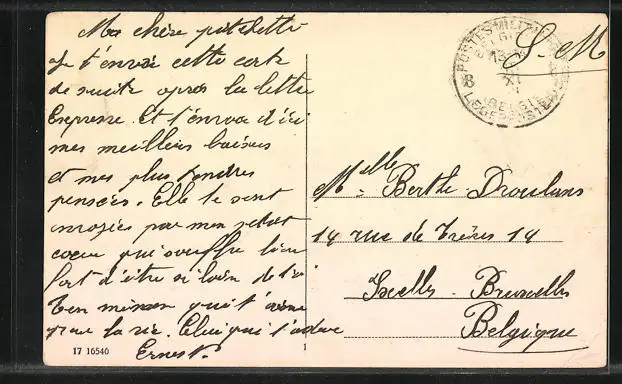 Ma chère petite
Je t'envoie cette carte
de suite après la lettre
Expresse. Et t'envoie d'ici
mes meilleurs baisers
et mes plus tendres
pensées. Elle te sont
envoyées par mon petit
cœur qui souffre bien
fort d'être si loin de toi
Ton mimon qui t'aime
pour la vie. Celui qui t'adore
Ernest.
17 16540
1
POSTES MILITAIRES
BELGIQUE
8 XI
BELGIE
LEGERPOSTERIJ
S.M
Mlle Berthe Droulans
14 rue de Trèves 14
Ixelles - Bruxelles
Belgique